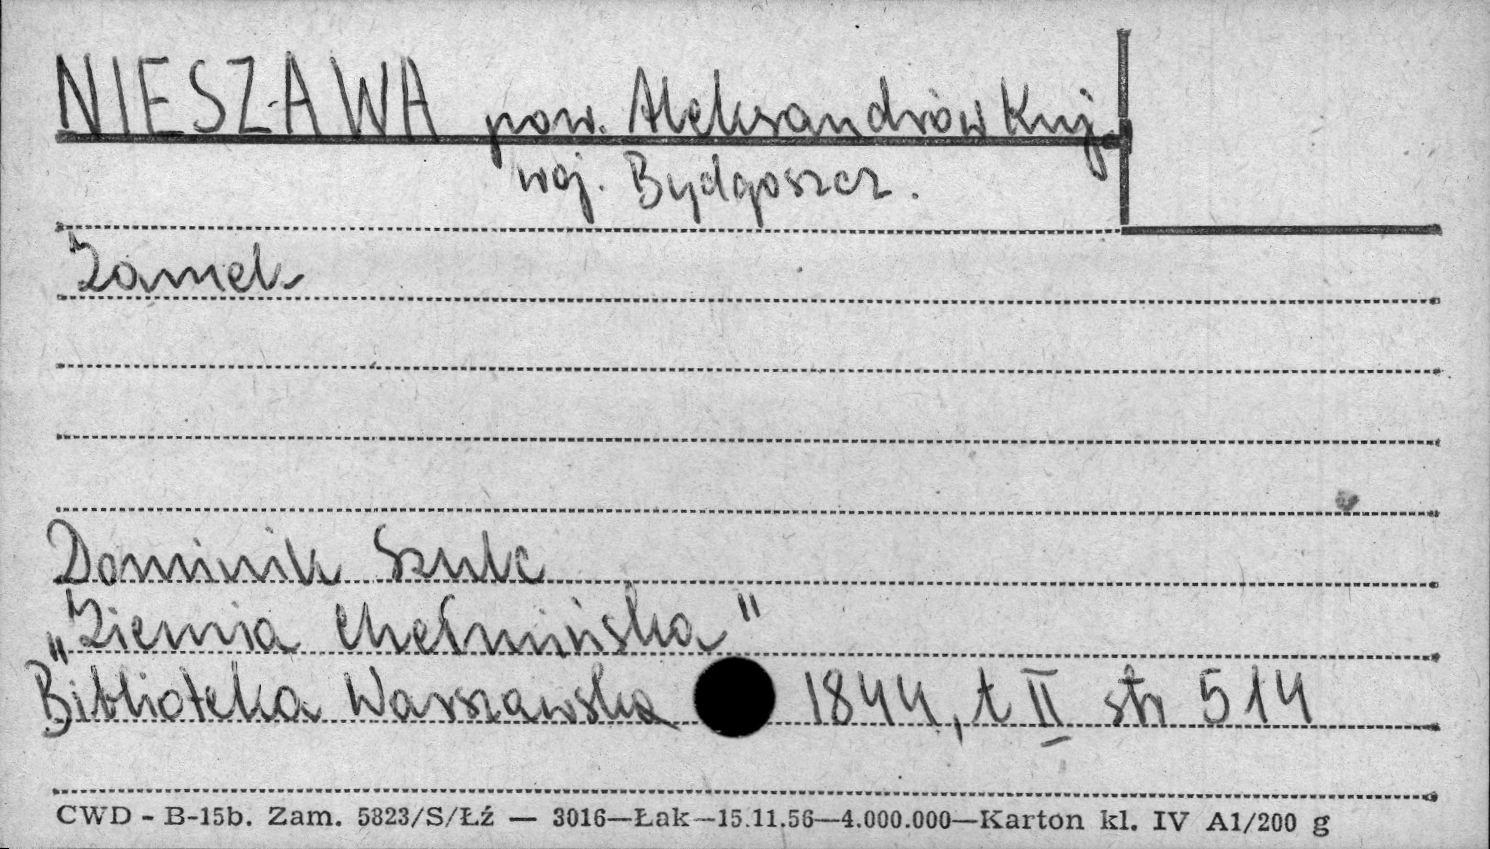 NIESZAWA pow. Aleksandrów Kuj.
woj. Bydgoszcz.
Zamek
Dominik Szulc
„Ziemia Chełmińska"
Biblioteka Warszawska 1844, t II str 514
CWD - B-15b. Zam. 5823/S/Łź — 3016—Łak—15.11.56—4.000.000—Karton kl. IV A1/200 g